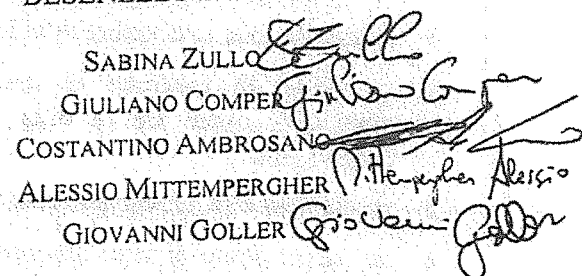 SABINA ZULLO S. Zullo
GIULIANO COMPER Giuliano Comper
COSTANTINO AMBROSANO
ALESSIO MITTEMPERGHER Mittempergher Alessio
GIOVANNI GOLLER Giovanni Goller